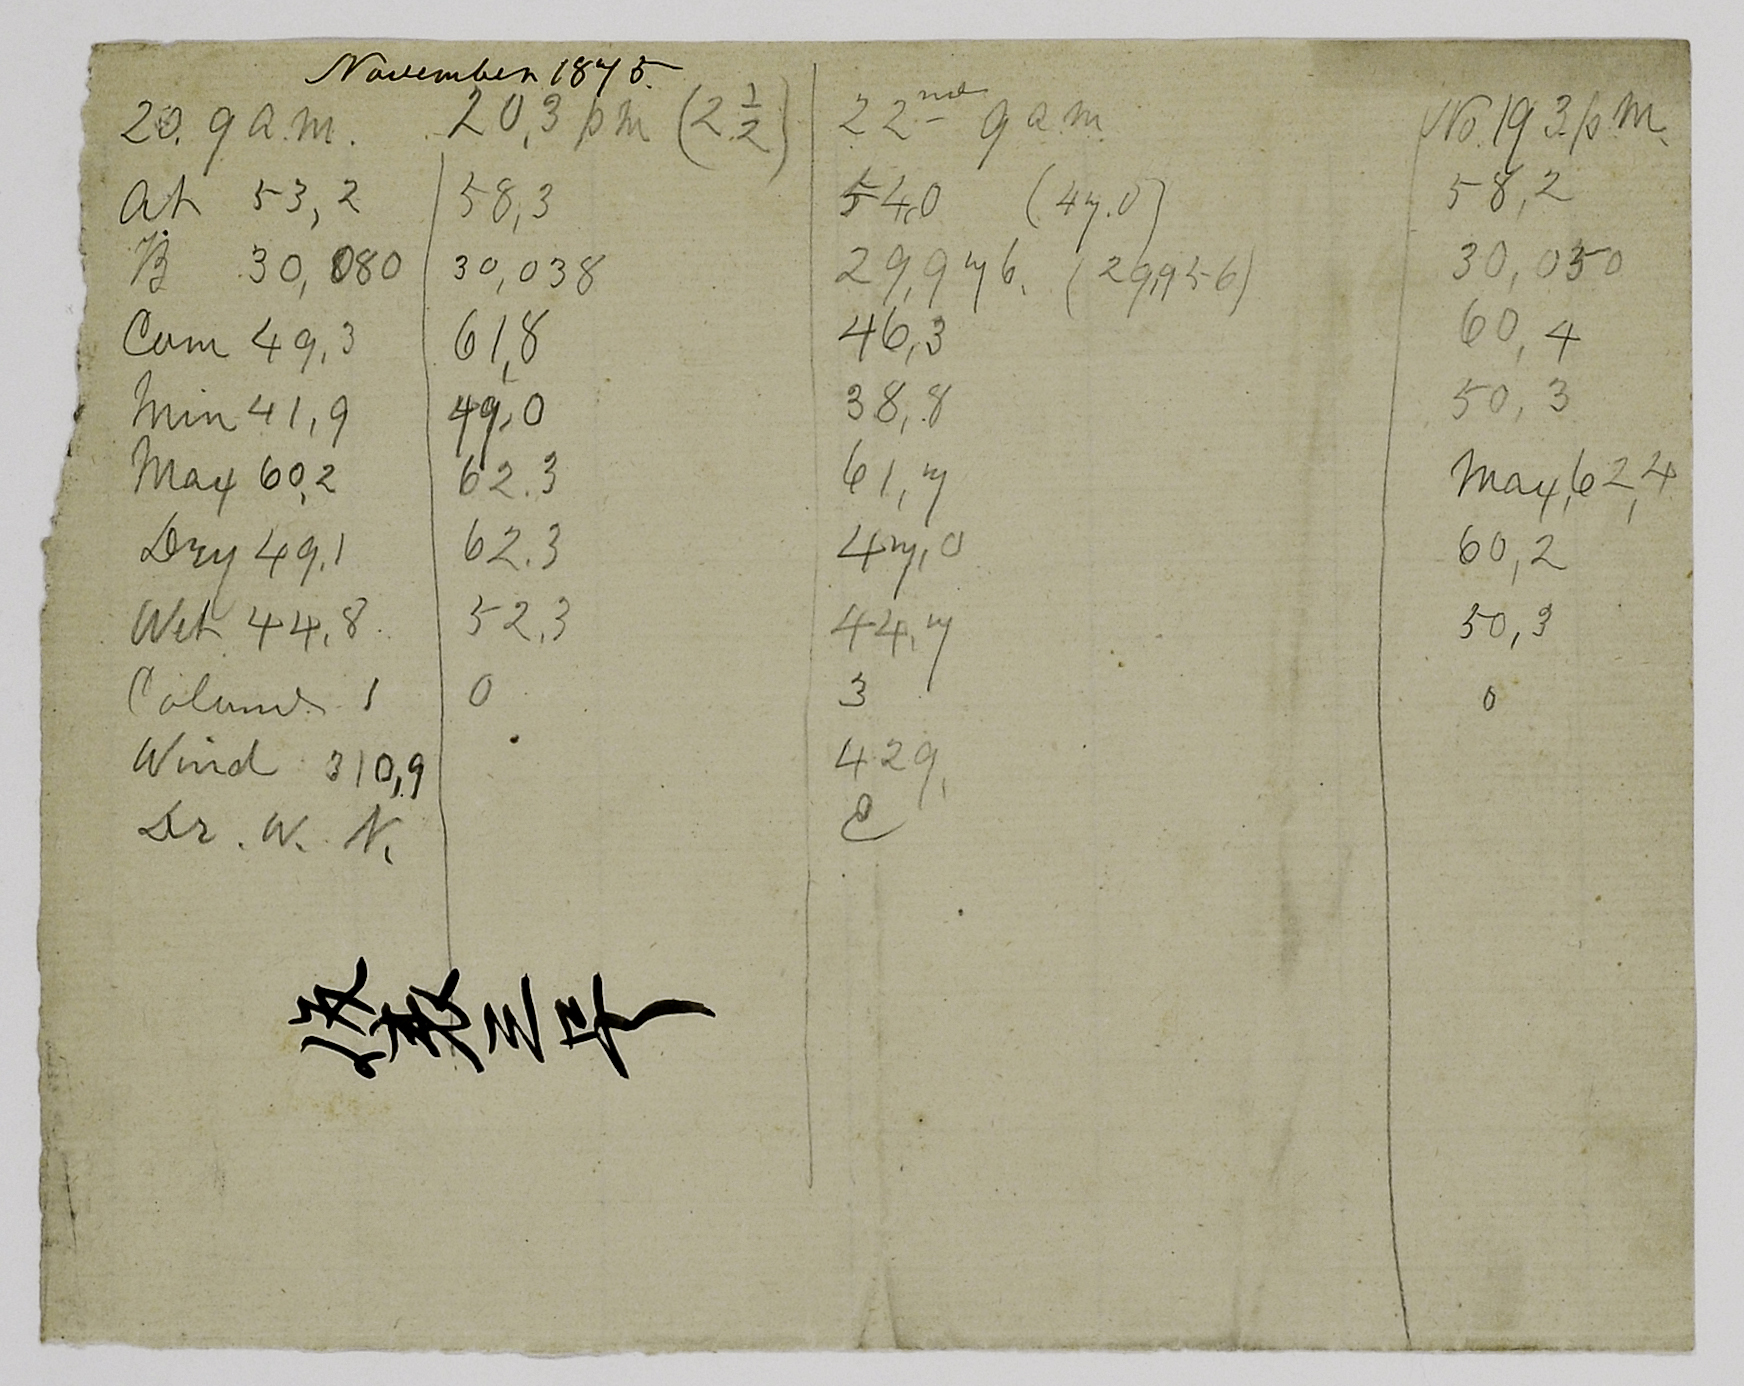 November 1875.
20. 9 a.m. 20,3 pm (2 1/2) 22nd 9 a.m. No. 19 3 p.m.
At 53,2 58,3 54,0 (47.0) 58,2
B 30,080 30,038 29,976. (29,956) 30,050
Com 49,3 61,8 46,3 60,4
Min 41,9 49,0 38,8 50,3
Max 60,2 62.3 61,7 Max, 62,4
Dry 49,1 62.3 47,0 60,2
Wet 44,8. 52,3 44,7 50,3
1 0 3 0
Wind 310,9 429,
Dr. W. N. E